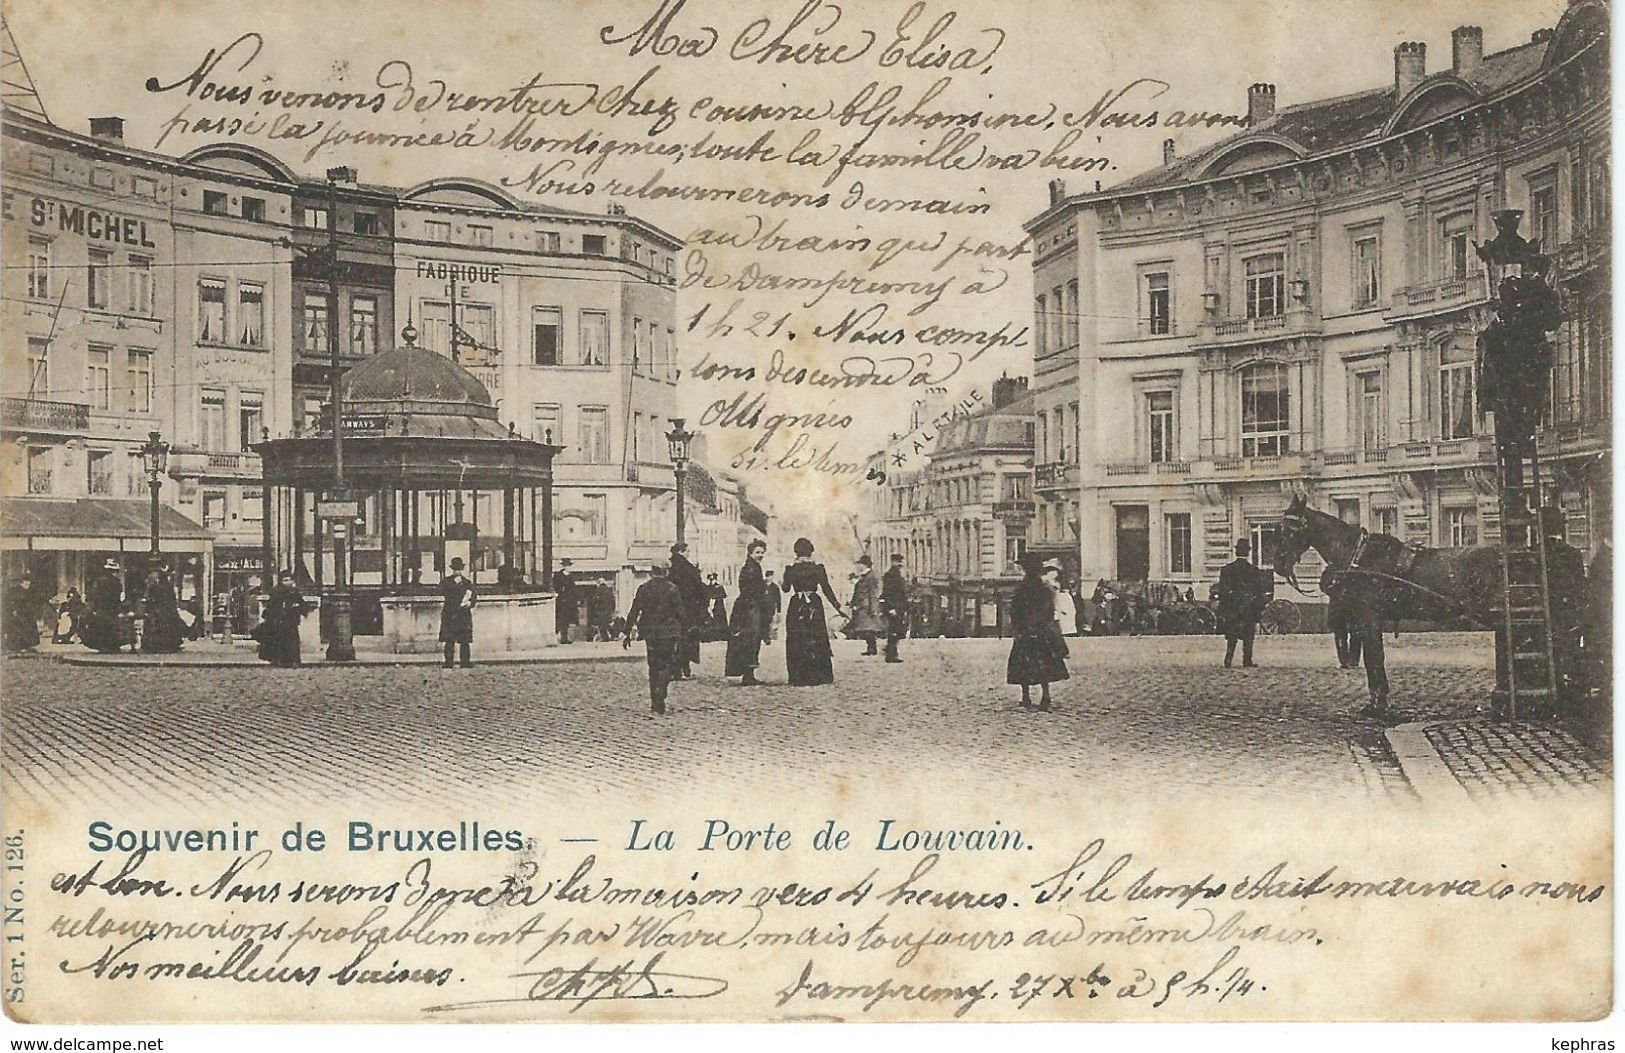 Ma Chère Elisa,
Nous venons de rentrer chez cousine Alphonsine. Nous avons
passé la journée à Montignies; toute la famille va bien.
Nous retournerons demain
au train qui part
de Dampremy à
1 h 21. Nous comp-
tons descendre à
Ottignies
si le temps
*ALETAILE
E ST MICHEL
FABRIQUE
DE
TRAMWAYS
Souvenir de Bruxelles. — La Porte de Louvain.
est bon. Nous serons donc à la maison vers 4 heures. Si le temps était mauvais nous
retournerions probablement par Wavre, mais toujours au même train.
Nos meilleurs baisers.
Dampremy, 27 Xbre à 5 h. 1/4.
Ser. 1 No. 126.
www.delcampe.net
kephras